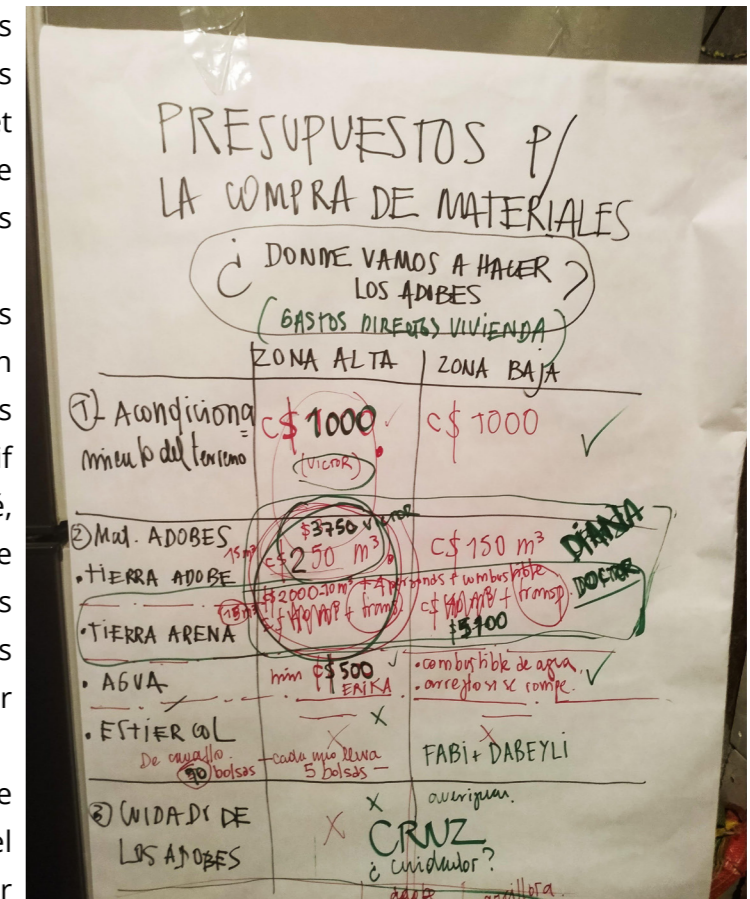 s
s
et
e
s
s
n
s
if
é,
e
s
s
r
e
el
r
PRESUPUESTOS P/
LA COMPRA DE MATERIALES
¿ DONDE VAMOS A HACER
LOS ADOBES ?
(GASTOS DIRECTOS VIVIENDA)
ZONA ALTA
ZONA BAJA
1) Acondiciona
miento del terreno
C$ 1000
(VICTOR)
C$ 1000
2) Mat. ADOBES
• TIERRA ADOBE
15 m³
$3750 VICTOR
C$ 250 m³
C$ 150 m³
DIANA
• TIERRA ARENA
15 m³
$2000-10m³ + 4 personas + combustible
+ transp.
+ transp.
$5100
DOCTOR
• AGUA
min C$500
ERIKA
• combustible de agua
• arreglo si se rompe.
• ESTIERCOL
De caballo.
90 bolsas
X
X
— cada uno lleva
5 bolsas —
X
FABI + DABEYLI
3) CUIDADO DE
LOS ADOBES
X
X
averiguar.
CRUZ
¿ cuidador?